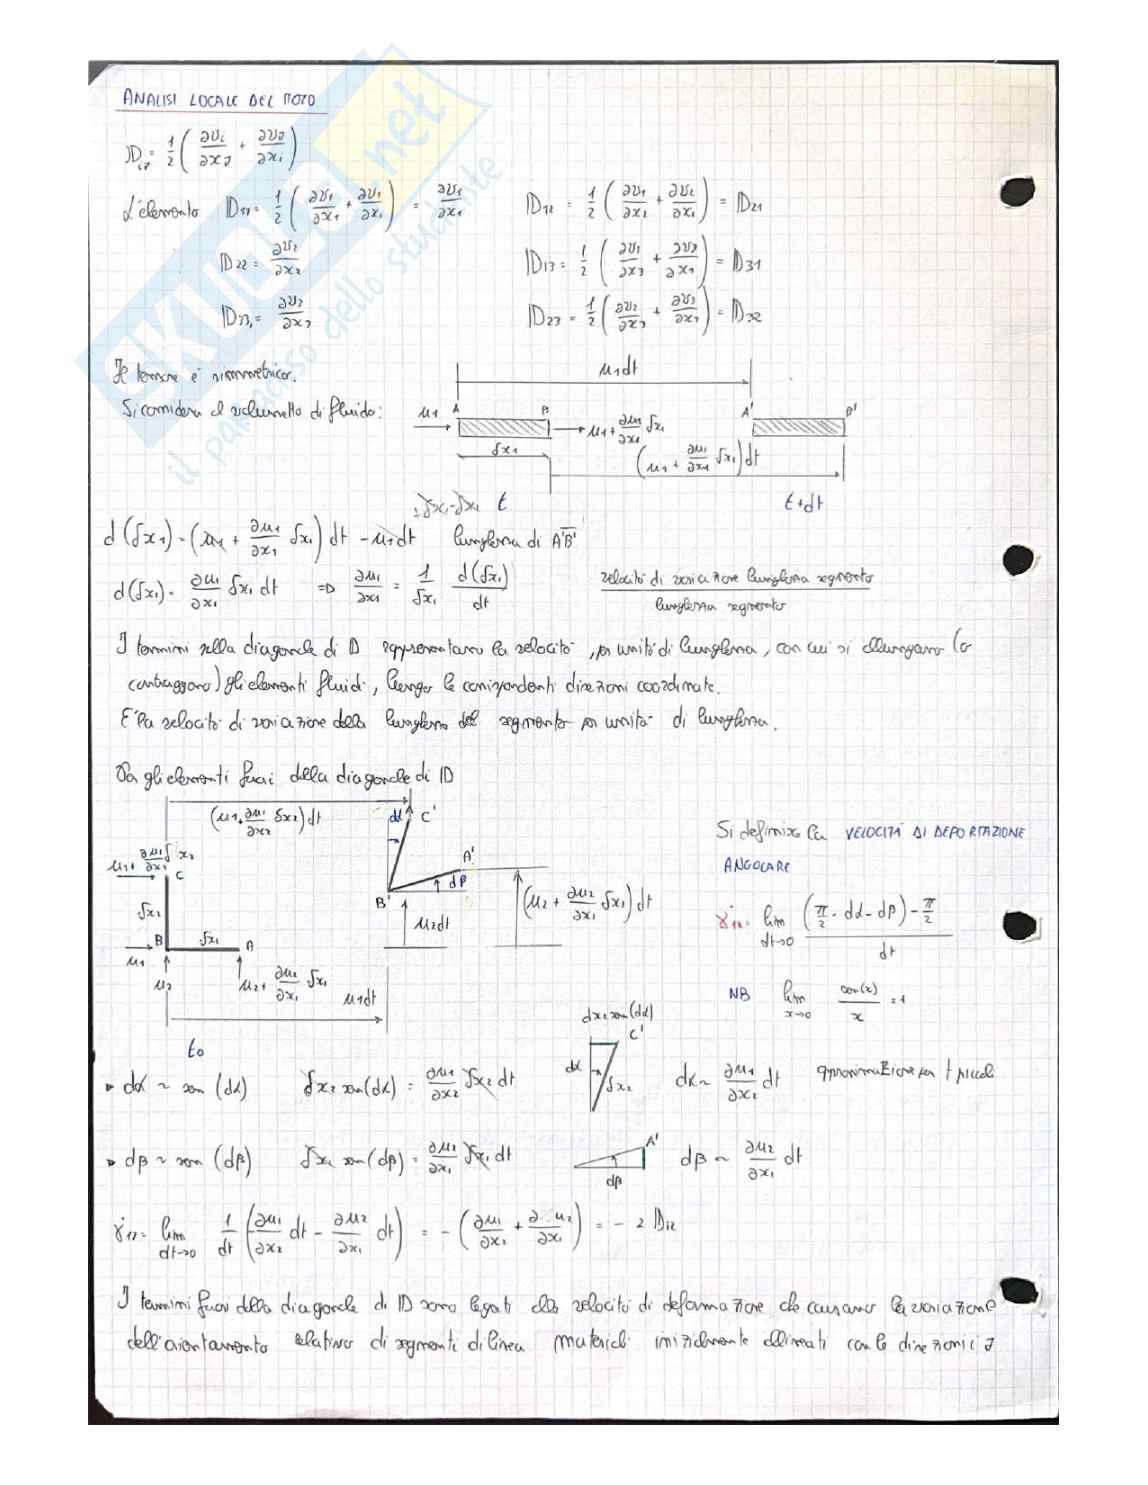 ANALISI LOCALE DEL MOTO
𝔻ij = 1/2 (∂vi/∂xj + ∂vj/∂xi)
L'elemento 𝔻11 = 1/2 (∂v1/∂x1 + ∂v1/∂x1) = ∂v1/∂x1    𝔻12 = 1/2 (∂v1/∂x2 + ∂v2/∂x1) = 𝔻21
𝔻22 = ∂v2/∂x2    𝔻13 = 1/2 (∂v1/∂x3 + ∂v3/∂x1) = 𝔻31
𝔻33 = ∂v3/∂x3    𝔻23 = 1/2 (∂v2/∂x3 + ∂v3/∂x2) = 𝔻32
Il tensore è simmetrico.
u1dt
Si considera il volumetto di fluido:
u1 A B u1 + ∂u1/∂x1 δx1 A' B'
δx1 (u1 + ∂u1/∂x1 δx1) dt
t t+dt
d(δx1) = (u1 + ∂u1/∂x1 δx1) dt - u1dt lunghezza di A'B'
d(δx1) = ∂u1/∂x1 δx1 dt ⇒ ∂u1/∂x1 = 1/δx1 d(δx1)/dt velocità di variazione lunghezza segmento / lunghezza segmento
I termini nella diagonale di 𝔻 rappresentano la velocità, per unità di lunghezza, con cui si allungano (o
contraggono) gli elementi fluidi, lungo le corrispondenti direzioni coordinate.
E' la velocità di variazione della lunghezza del segmento per unità di lunghezza.
Da gli elementi fuori della diagonale di 𝔻
(u1+∂u1/∂x2 δx2)dt dα C'
Si definisce la VELOCITÀ DI DEFORTAZIONE
ANGOLARE
u1+ ∂u1/∂x2 δx2 C A' dβ B'
(u2 + ∂u2/∂x1 δx1) dt
u2dt
δx2 B δx1 A
γ̇12 = lim dt→0 ((π/2 - dα - dβ) - π/2)/dt
u1 u2 u2+ ∂u2/∂x1 δx1 u1dt
NB lim x→0 sen(x)/x = 1
t0
dx2 sen(dα) C' dα δx2
▸ dα ~ sen (dα) δx2 sen(dα) = ∂u1/∂x2 δx2 dt dα ~ ∂u1/∂x2 dt approssimazione per t piccoli
▸ dβ ~ sen (dβ) δx1 sen(dβ) = ∂u2/∂x1 δx1 dt A' dβ dβ ~ ∂u2/∂x1 dt
γ̇12 = lim dt→0 1/dt (∂u1/∂x2 dt - ∂u2/∂x1 dt) = - (∂u1/∂x2 + ∂u2/∂x1) = - 2 𝔻12
I termini fuori della diagonale di 𝔻 sono legati alla velocità di deformazione che causano la variazione
dell'orientamento relativo di segmenti di linea materiali inizialmente allineati con le direzioni i j
SKUOLA.net
il paradiso dello studente